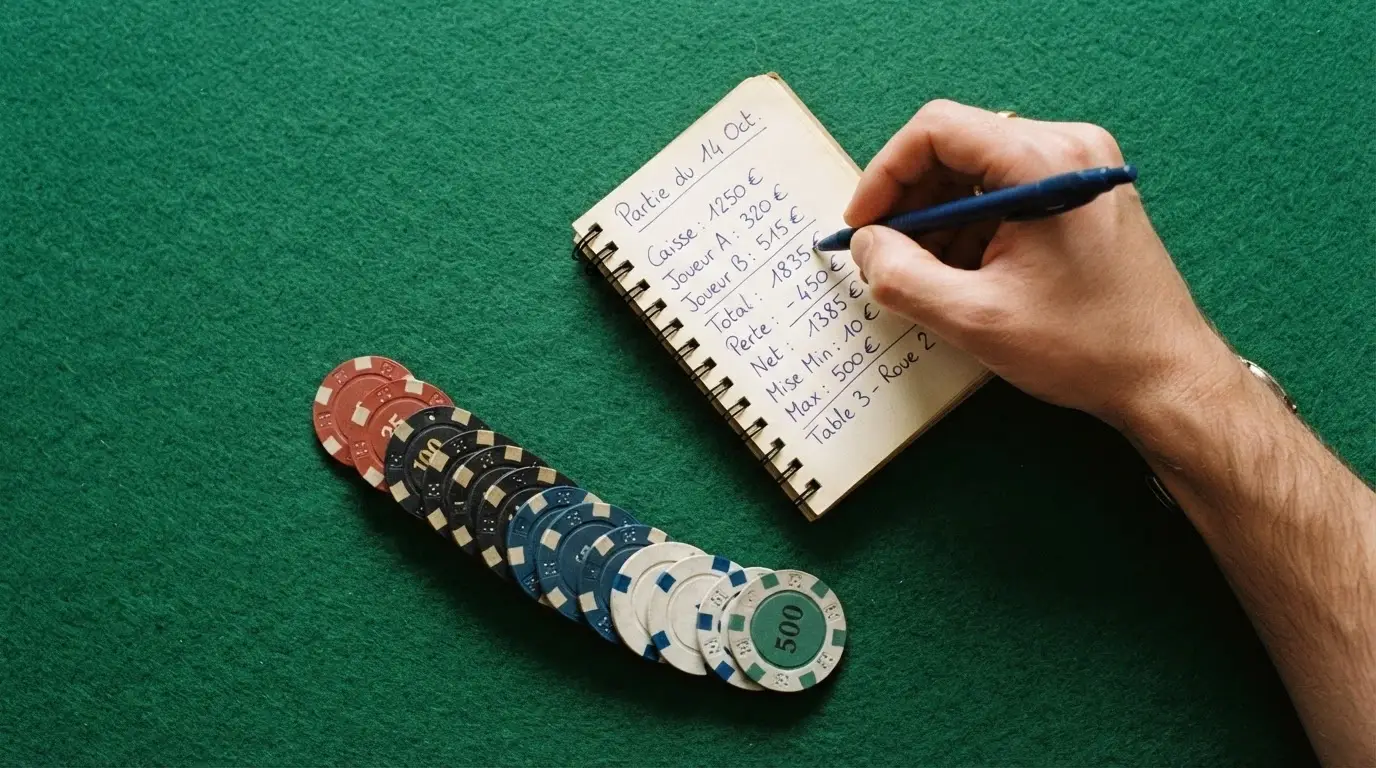 Partie du 14 Oct.
Caisse: 1250 €
Joueur A: 320 €
Joueur B: 515 €
Total: 1835 €
Perte: -450 €
Net: 1385 €
Mise Min: 10 €
Max: 500 €
Table 3 - Roue 2
25
100
500